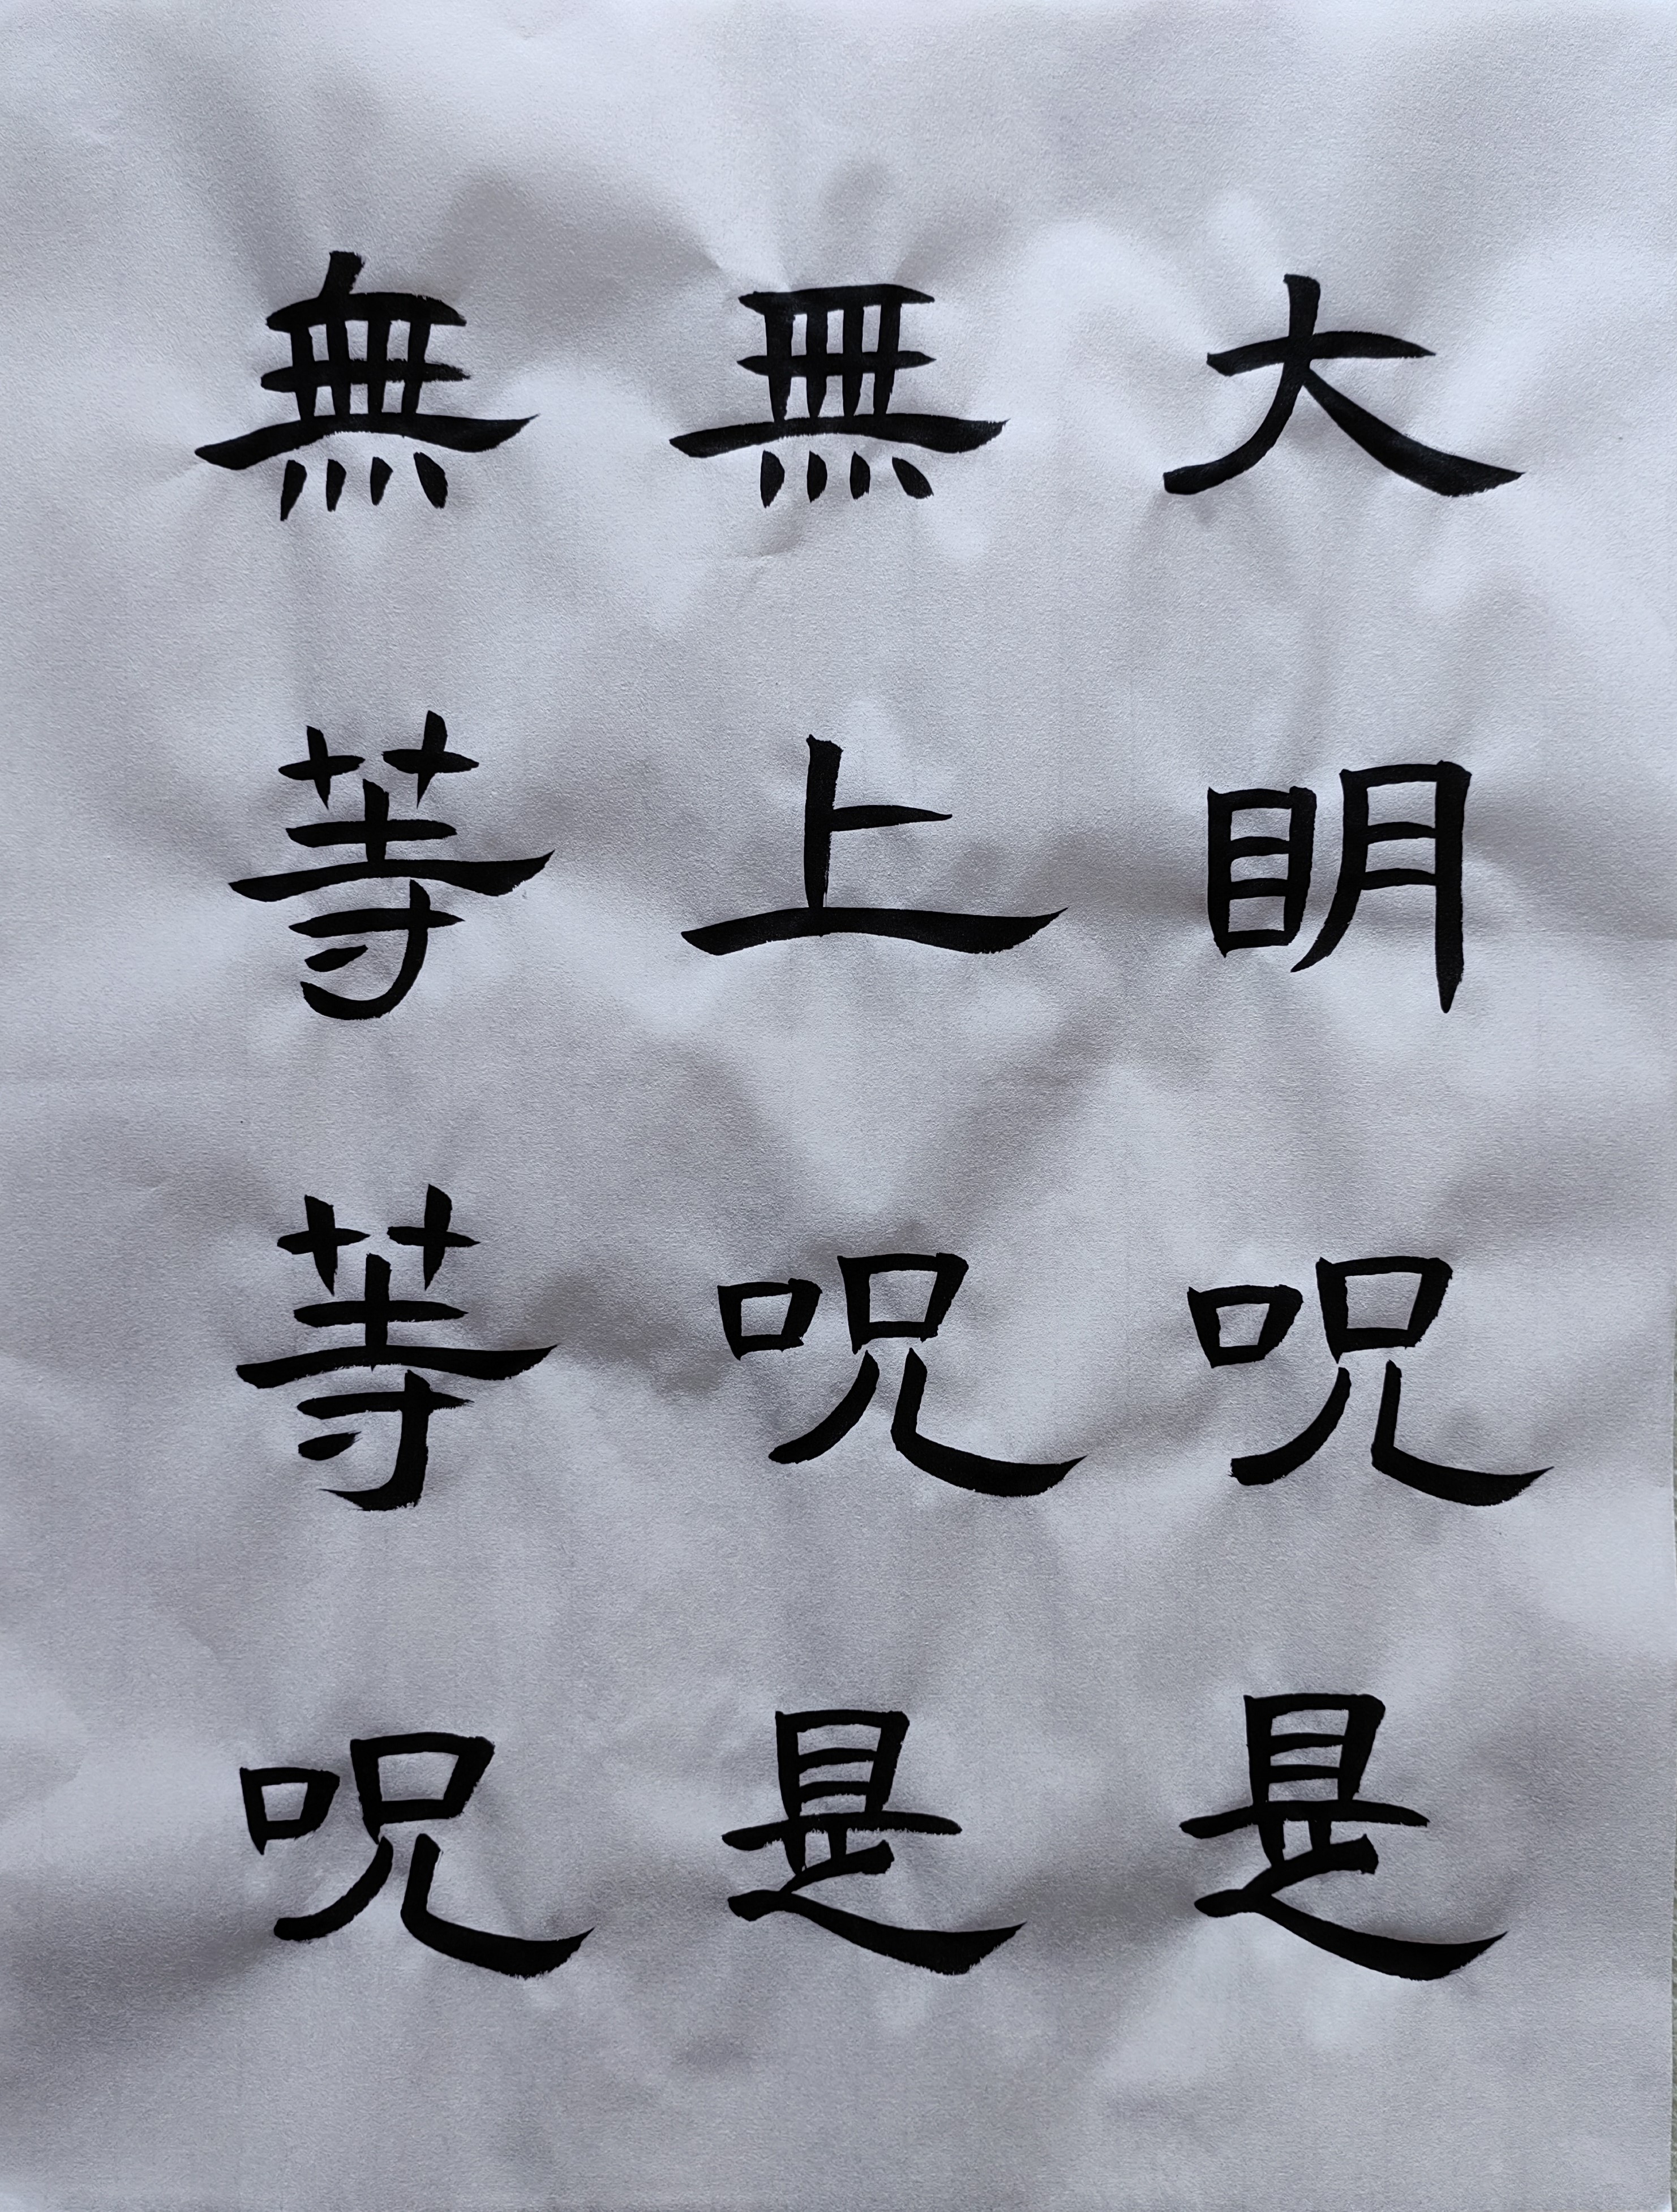 大明呪是
無上呪是
無等等呪